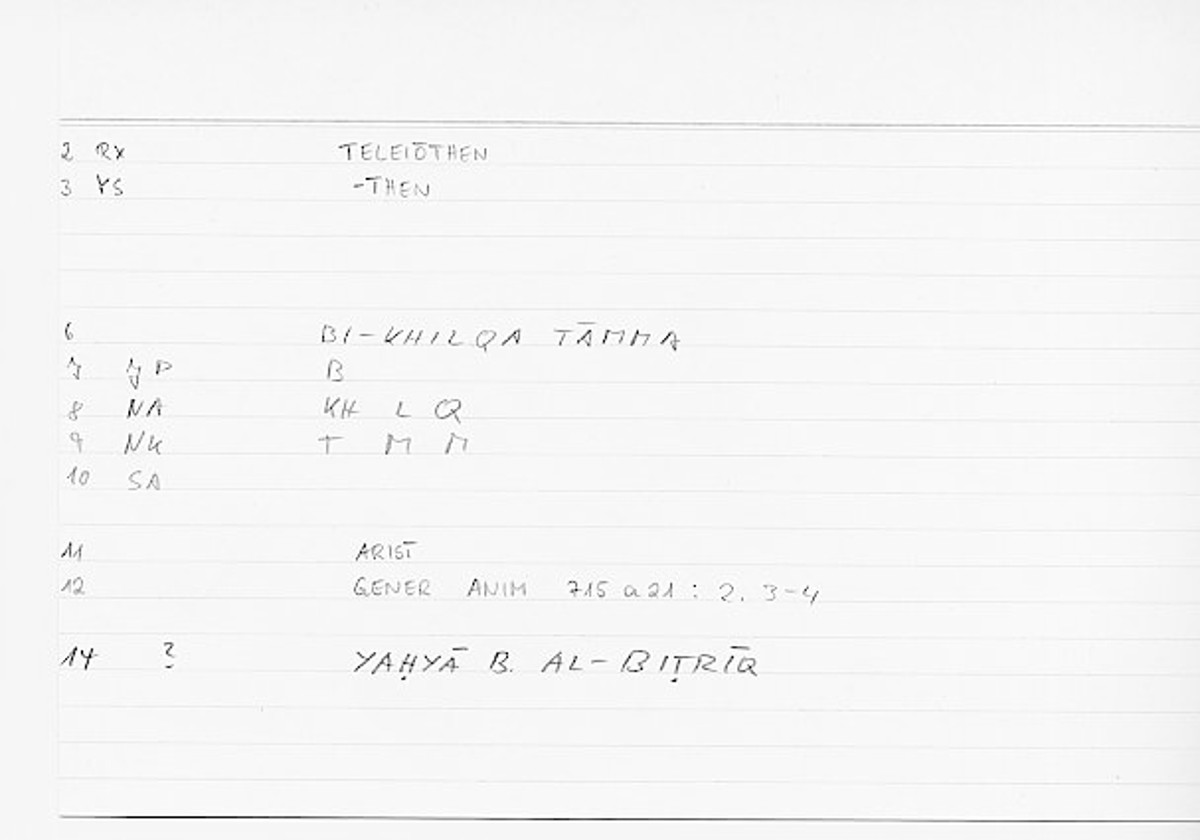 2 RX TELEIŌTHEN
3 VS -THEN
6 BI-KHILQA TĀMMA
7 JP B
8 NA KH L Q
9 NK T M M
10 SA
11 ARIST
12 GENER ANIM 715 a 21 : 2. 3-4
14 ? YAḤYĀ B. AL-BIṬRĪQ